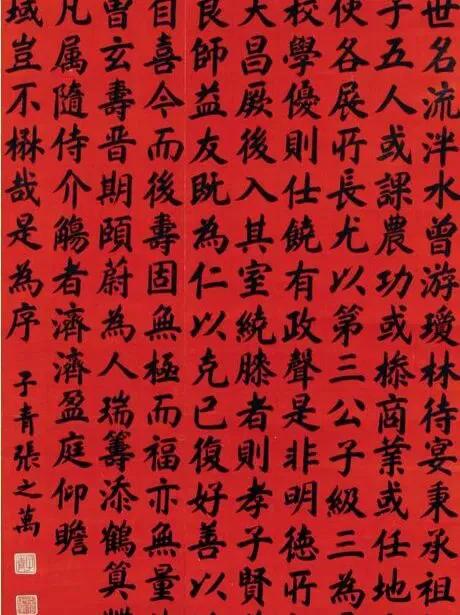 世名流泮水曾游瓊林待宴秉承祖
子五人或課農功或操商業或任地
使各展所長尤以第三公子級三為
校學優則仕饒有政聲是非明德所
大昌厥後入其室繞膝者則孝子賢
良師益友既為仁以克己復好善以
自喜今而後壽固無極而福亦無量
曾玄壽晉期頤蔚為人瑞籌添鶴算
凡属隨侍介觴者濟濟盈庭仰瞻
域豈不楙哉是為序
子青張之萬